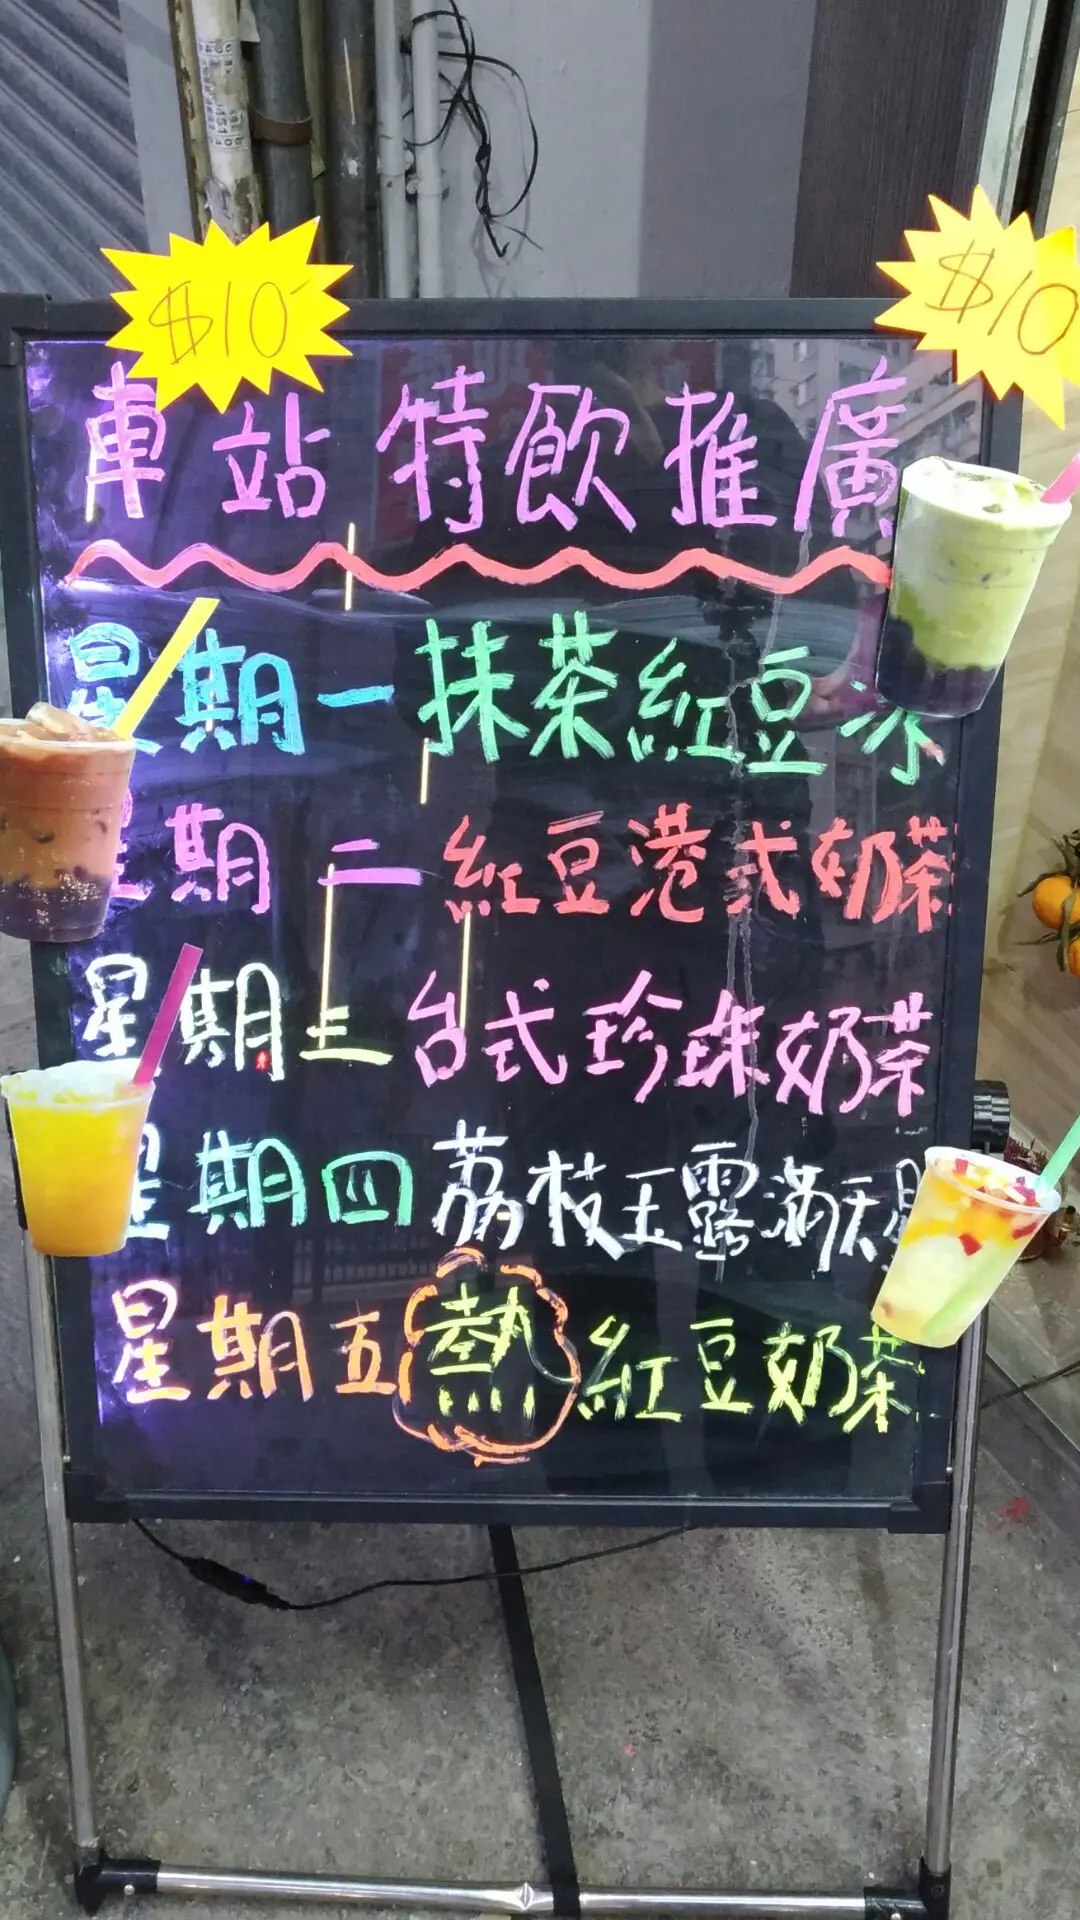 $10-
$10
車站特飲推廣
星期一 抹茶紅豆冰
星期二 紅豆港式奶茶
星期三 台式珍珠奶茶
星期四 荔枝玉露滿天星
星期五 熱 紅豆奶茶